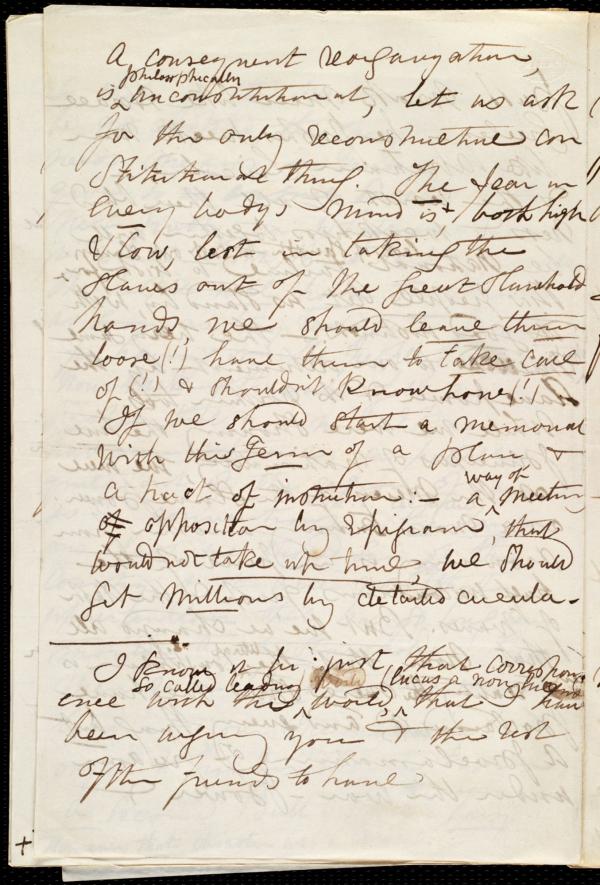 A consequent reorganization,
philosophically
is ^ unconstitutional, let us ask
for the only reconstructive con
stitutional thing. The fear in
every body's mind is, both high
& low, lest in taking the
Slaves out of the Great Slavehold
hands, we should leave them
loose (!) have them to take care
of (!) & shouldn't know how (!)
If we should start a memorial
with this Germ of a plan &
a tract of instruction:— a ^ way of meeting
of opposition by Epigram, that
would not take up time, we should
get Millions by detailed circula-
I know it for: just that correspond
so called leading
ence with the ^ world, ^ that I have
been urging you & the rest
of the friends to have
+